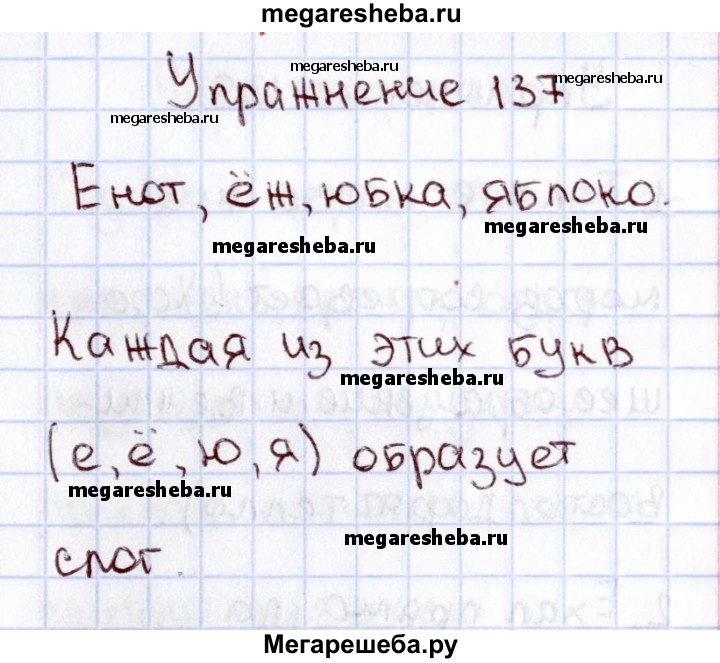 megaresheba.ru
megaresheba.ru
Упражнение 137
megaresheba.ru
megaresheba.ru
Енот, ёж, юбка, яблоко.
megaresheba.ru
megaresheba.ru
Каждая из этих букв
megaresheba.ru
(е, ё, ю, я) образует
megaresheba.ru
megaresheba.ru
слог.
Мегарешеба.ру